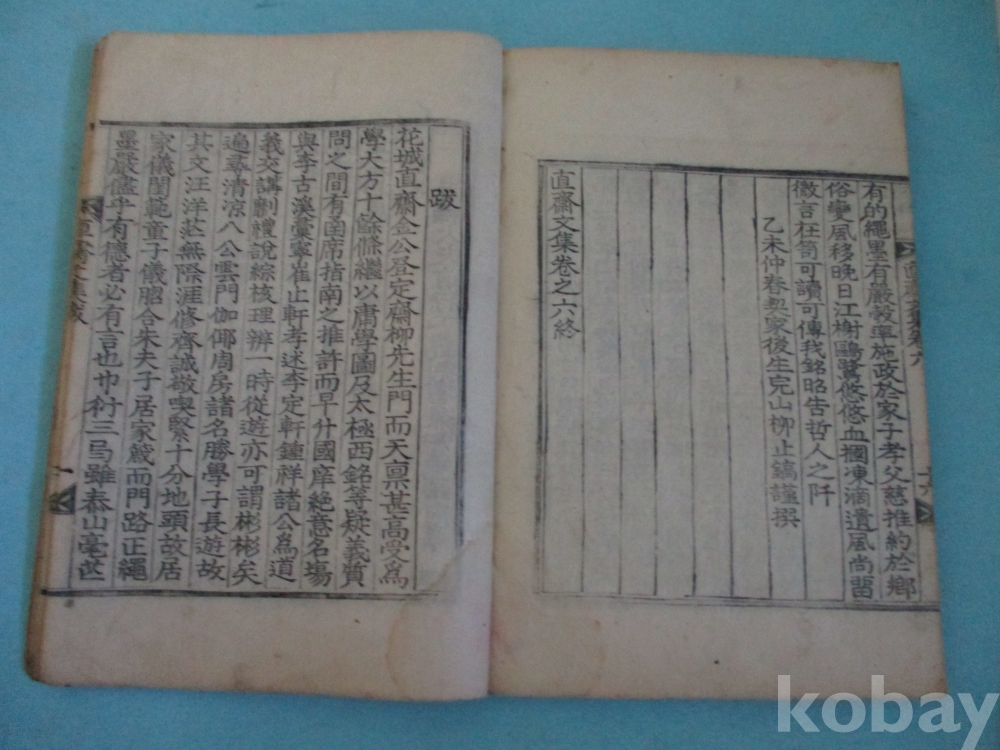 有的繩墨有嚴彀率施政於家子孝父慈推約於鄉
俗變風移晚日江榭鷗鷺悠悠血摑凍滴遺風尚留
徵言在笥可讀可傳我銘昭告哲人之阡
乙未仲春契家後生完山柳止鎬謹撰
直齋文集卷之六終
跋
花城直齋金公昼定齋柳先生門而天稟甚高受爲
學大方十餘條繼以庸學圖及太極西銘等疑義質
問之間有函席指南之推許而早廾國庠絶意名場
與李古溪彙寧崔止軒孝述李定軒鍾祥諸公爲道
義交講劘禮說綜核理辨一時從遊亦可謂彬彬矣
遍尋清凉八公雲門伽倻周房諸名勝學子長遊故
其文汪洋茫無際涯修齊誠敬喫緊十分地頭故居
家儀閨範童子儀脗合朱夫子居家箴而門路正繩
墨嚴儘乎有德者必有言也
雖泰山毫芒
kobay